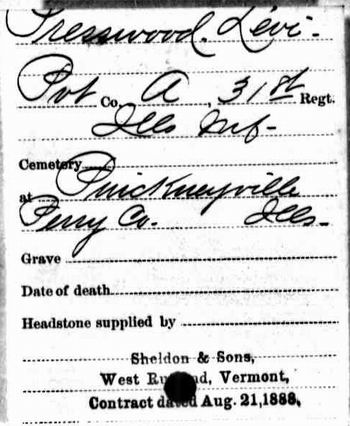 Presswood, Levi.
Pvt Co. A, 31st Regt.
Ills Inf-
Cemetery
at Pinckneyville
Perry Co. Ills-
Grave
Date of death
Headstone supplied by
Sheldon & Sons,
West Vermont,
Contract dated Aug. 21, 1888.